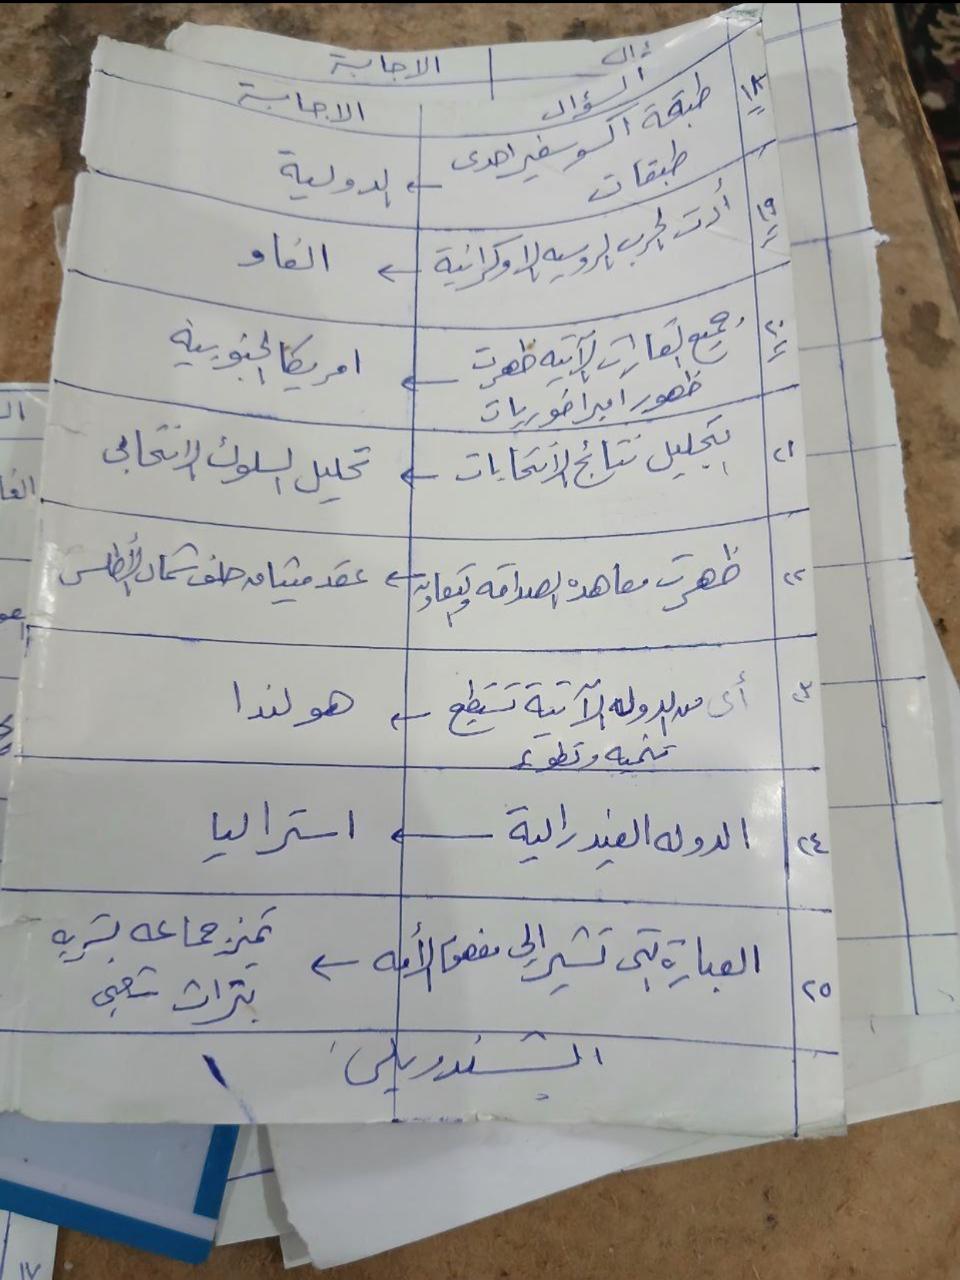 الاجابة
السؤال الاجابة
١٨ طبقة اكسوسفير احدى طبقات ← الدولية
١٩ أدت الحرب الروسيه الاوكرانية ← الفاو
٢٠ جميع القارات الآتيه ظهرت ← امريكا الجنوبية
ظهور امبراطوريات
٢١ تحليل نتائج الانتخابات ← تحليل السلوك الانتخابى
٢٢ ظهرت معاهدة الصداقه والتعاون ← عقد ميثاق حلف شمال الأطلسى
٢٣ أى من الدوله الآتية تستطيع ← هولندا
تنميه وتطوير
٢٤ الدوله الفيدرالية ← استراليا
٢٥ العبارة التى تشير الى مفهوم الأمه ← تميز جماعه بشريه
بتراث شعبى
١٧